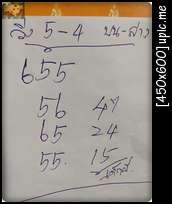 5-4 บน-ล่าง
655
56 47
65 24
55. 15
[450x600] upic.me